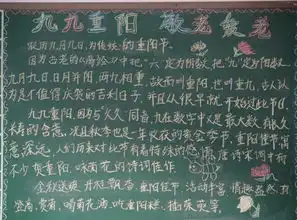 九九重阳 敬老爱老
农历九月九日,为传统的重阳节。
因为古老的《易经》中把"六"定为阴数,把"九"定为阳数,
九月九日,日月并阳,两九相重,故而叫重阳,也叫重九,古人认
为是个值得庆贺的吉利日子,并且从很早就开始过此节日。
九九重阳,因为与"久久"同音,九在数字中又是最大数,有长久
长寿的含意,况且秋季也是一年收获的黄金季节,重阳佳节,寓
意深远,人们历来对此节有着特殊的感情,唐诗宋词中有
不少贺重阳,咏菊花的诗词佳作。
金秋送爽,丹桂飘香,重阳佳节,活动丰富,情趣盎然,有
登高,赏菊,喝菊花酒,吃重阳糕,插茱萸等。